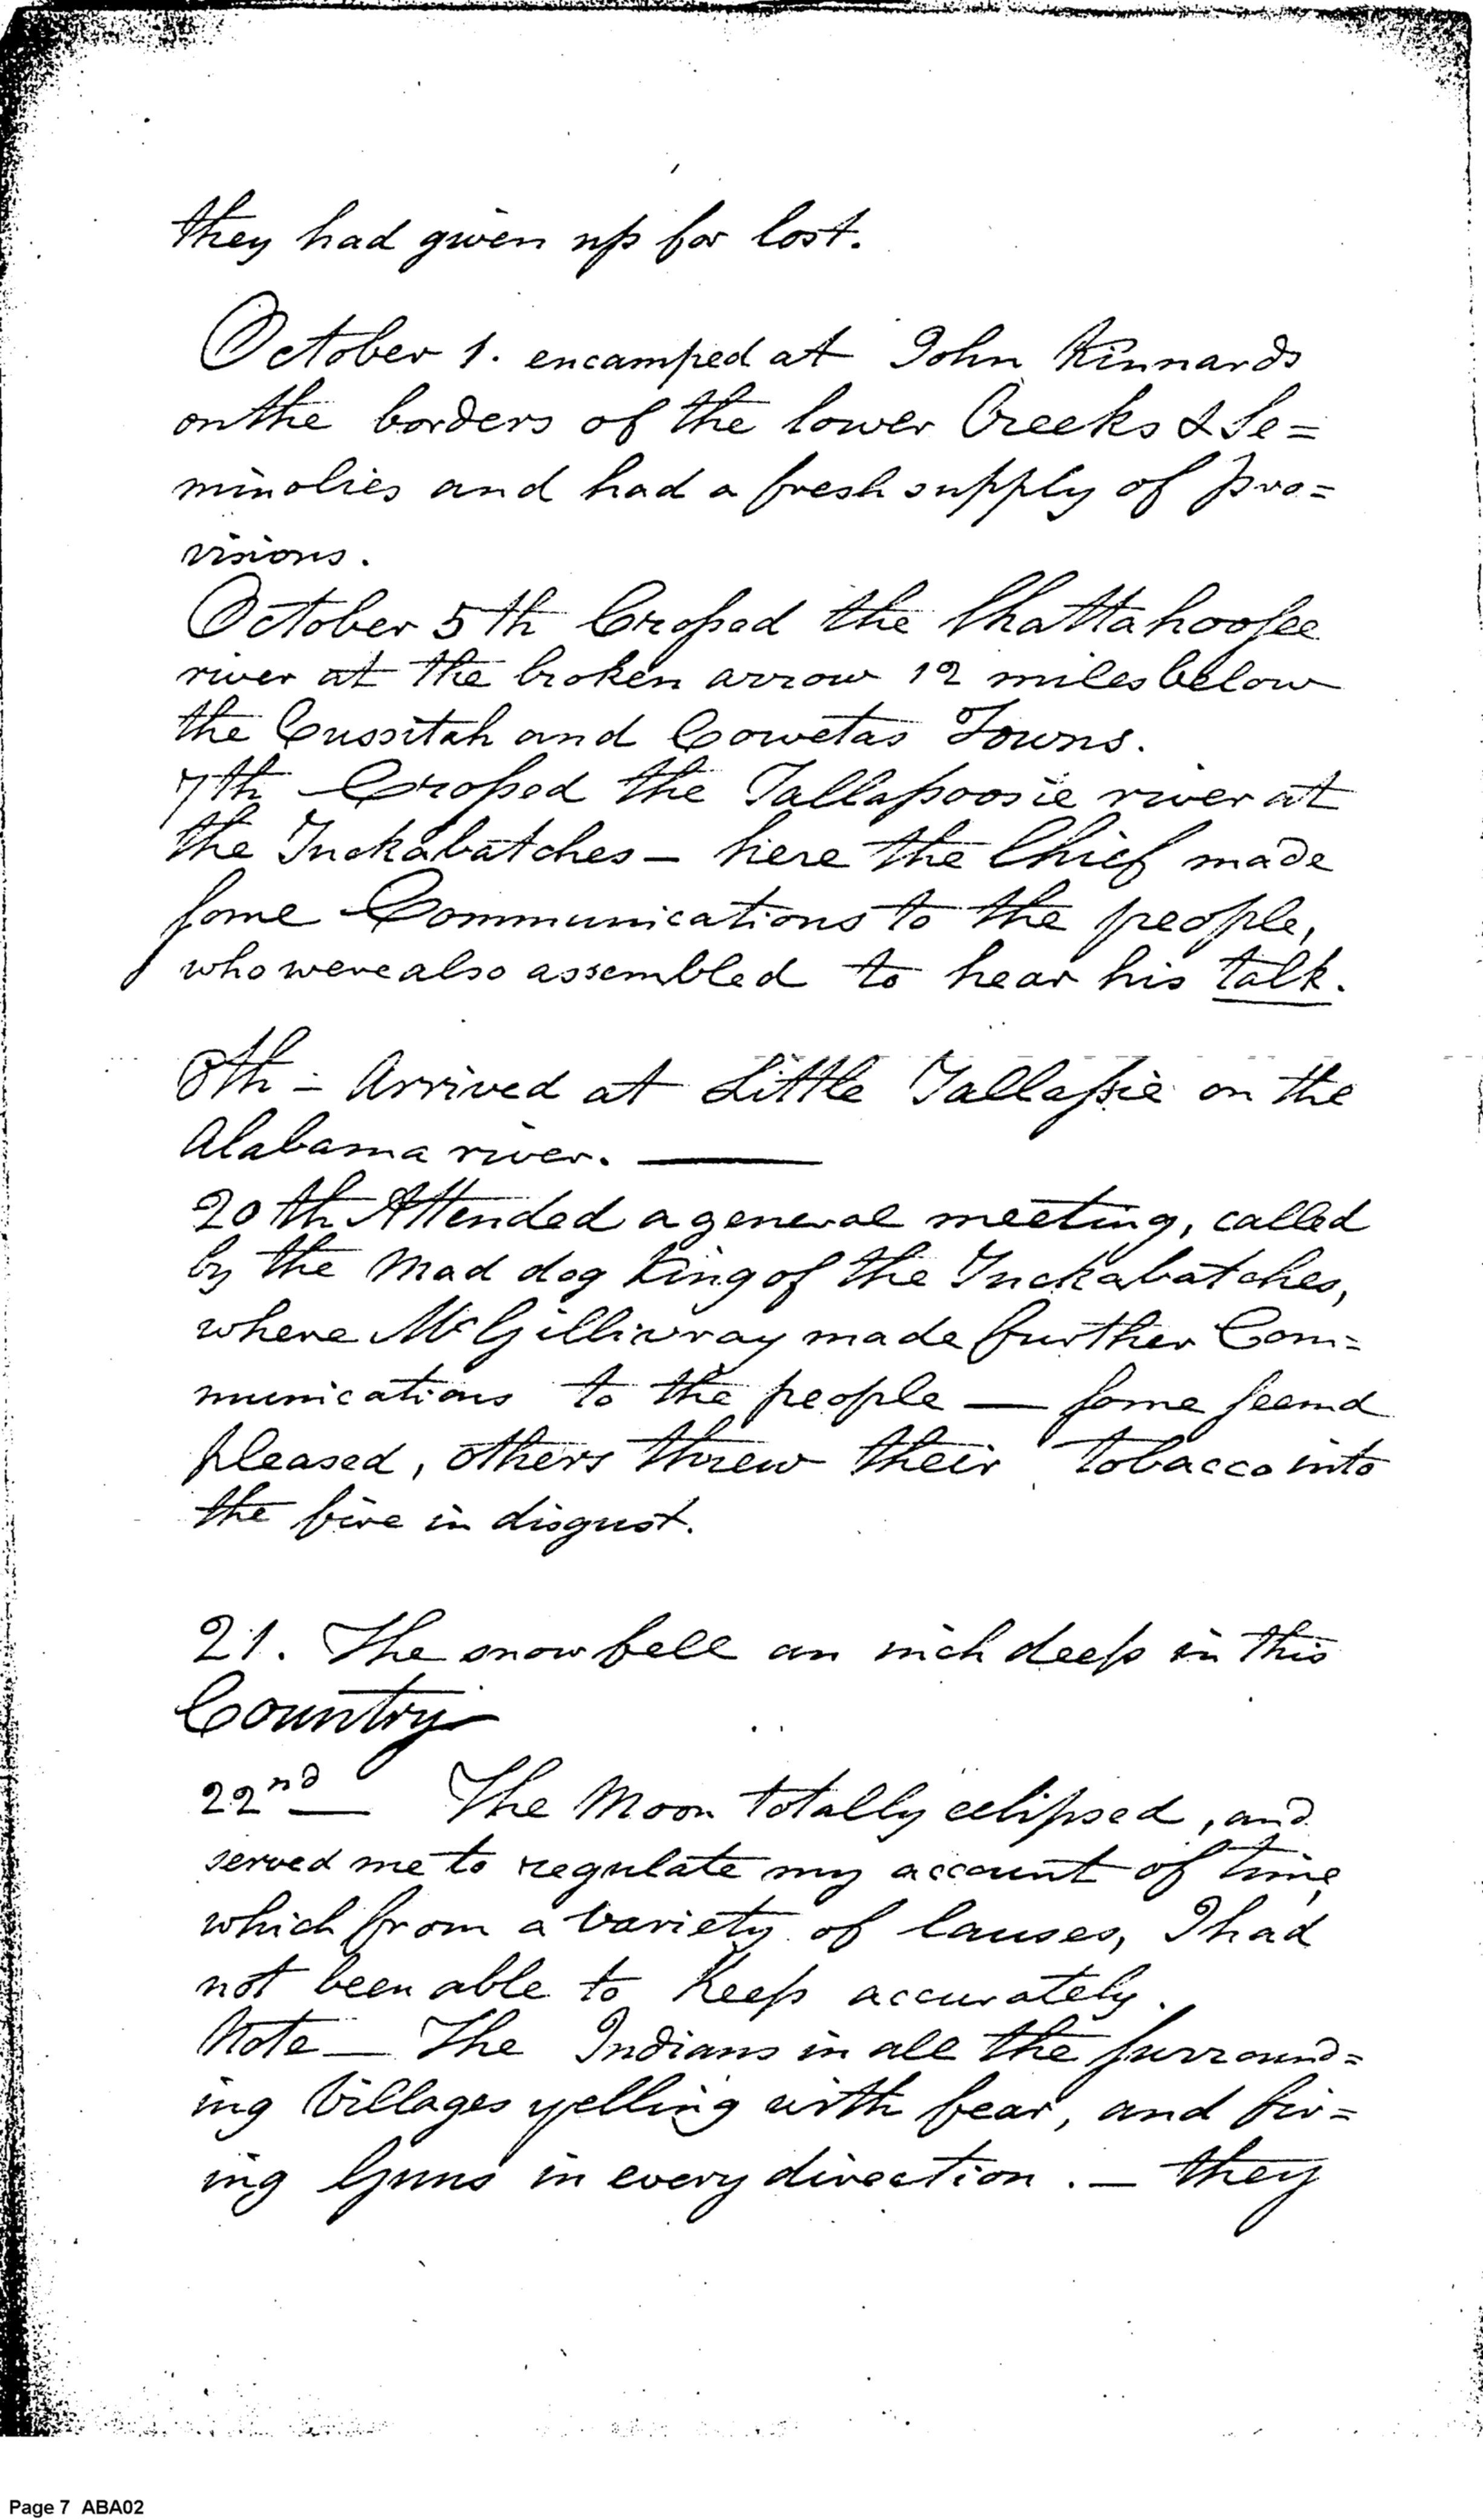 they had given up for lost.
October 1. encamped at John Kinnards
on the borders of the lower Creeks & Se=
minolies and had a fresh supply of pro=
visions.
October 5th Crossed the Chattahoosee
river at the broken arrow 12 miles below
the Cussitah and Cowetas Towns.
7th Crossed the Tallapoosie river at
the Tuckabatches — here the Chief made
some Communications to the people,
who were also assembled to hear his talk.
8th — Arrived at Little Tallassie on the
Alabama river. ———
20th Attended a general meeting, called
by the Mad dog King of the Tuckabatches,
where McGillivray made further Com=
munications to the people — some seemd
pleased, others threw their tobacco into
the fire in disgust.
21. The snow fell an inch deep in this
Country
22nd — The Moon totally eclipsed, and
served me to regulate my account of time,
which from a variety of Causes, I had
not been able to keep accurately.
Note — The Indians in all the surround=
ing Villages yelling with fear, and fir=
ing Guns in every direction. — they
Page 7 ABA02